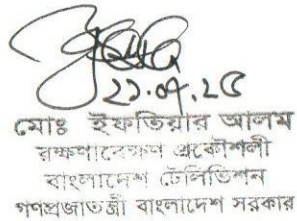 ২১.০৭.২৫
মোঃ ইফতিয়ার আলম
রক্ষণাবেক্ষণ প্রকৌশলী
বাংলাদেশ টেলিভিশন
গণপ্রজাতন্ত্রী বাংলাদেশ সরকার